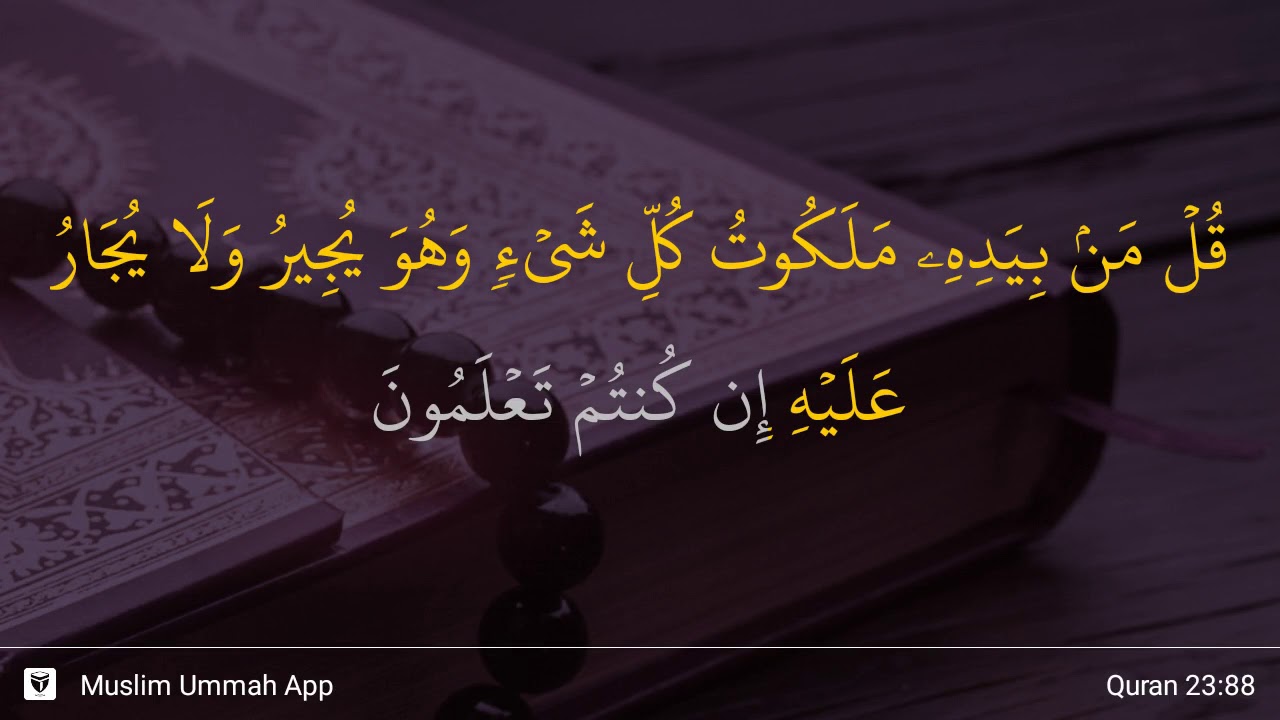 قُلۡ مَنۢ بِيَدِهِۦ مَلَكُوتُ كُلِّ شَىۡءٍۢ وَهُوَ يُجِيرُ وَلَا يُجَارُ
عَلَيۡهِ إِن كُنتُمۡ تَعۡلَمُونَ
Muslim Ummah App
Quran 23:88